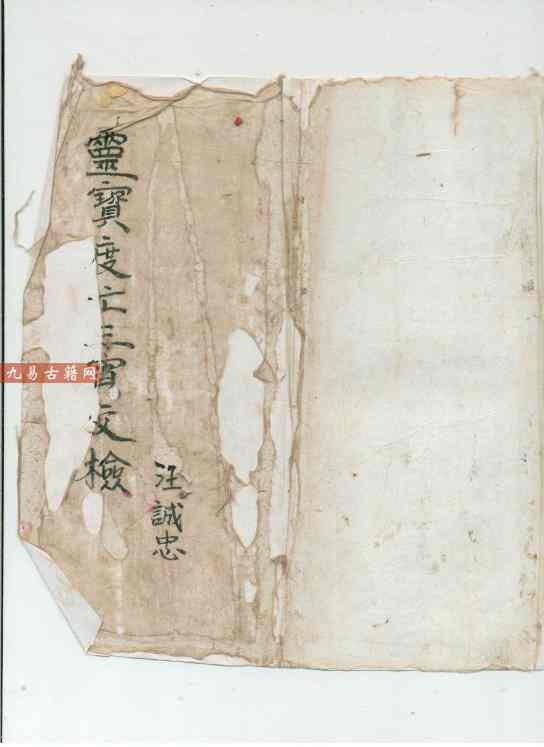 靈寶度亡三宵文檢
汪誠忠
九易古籍网